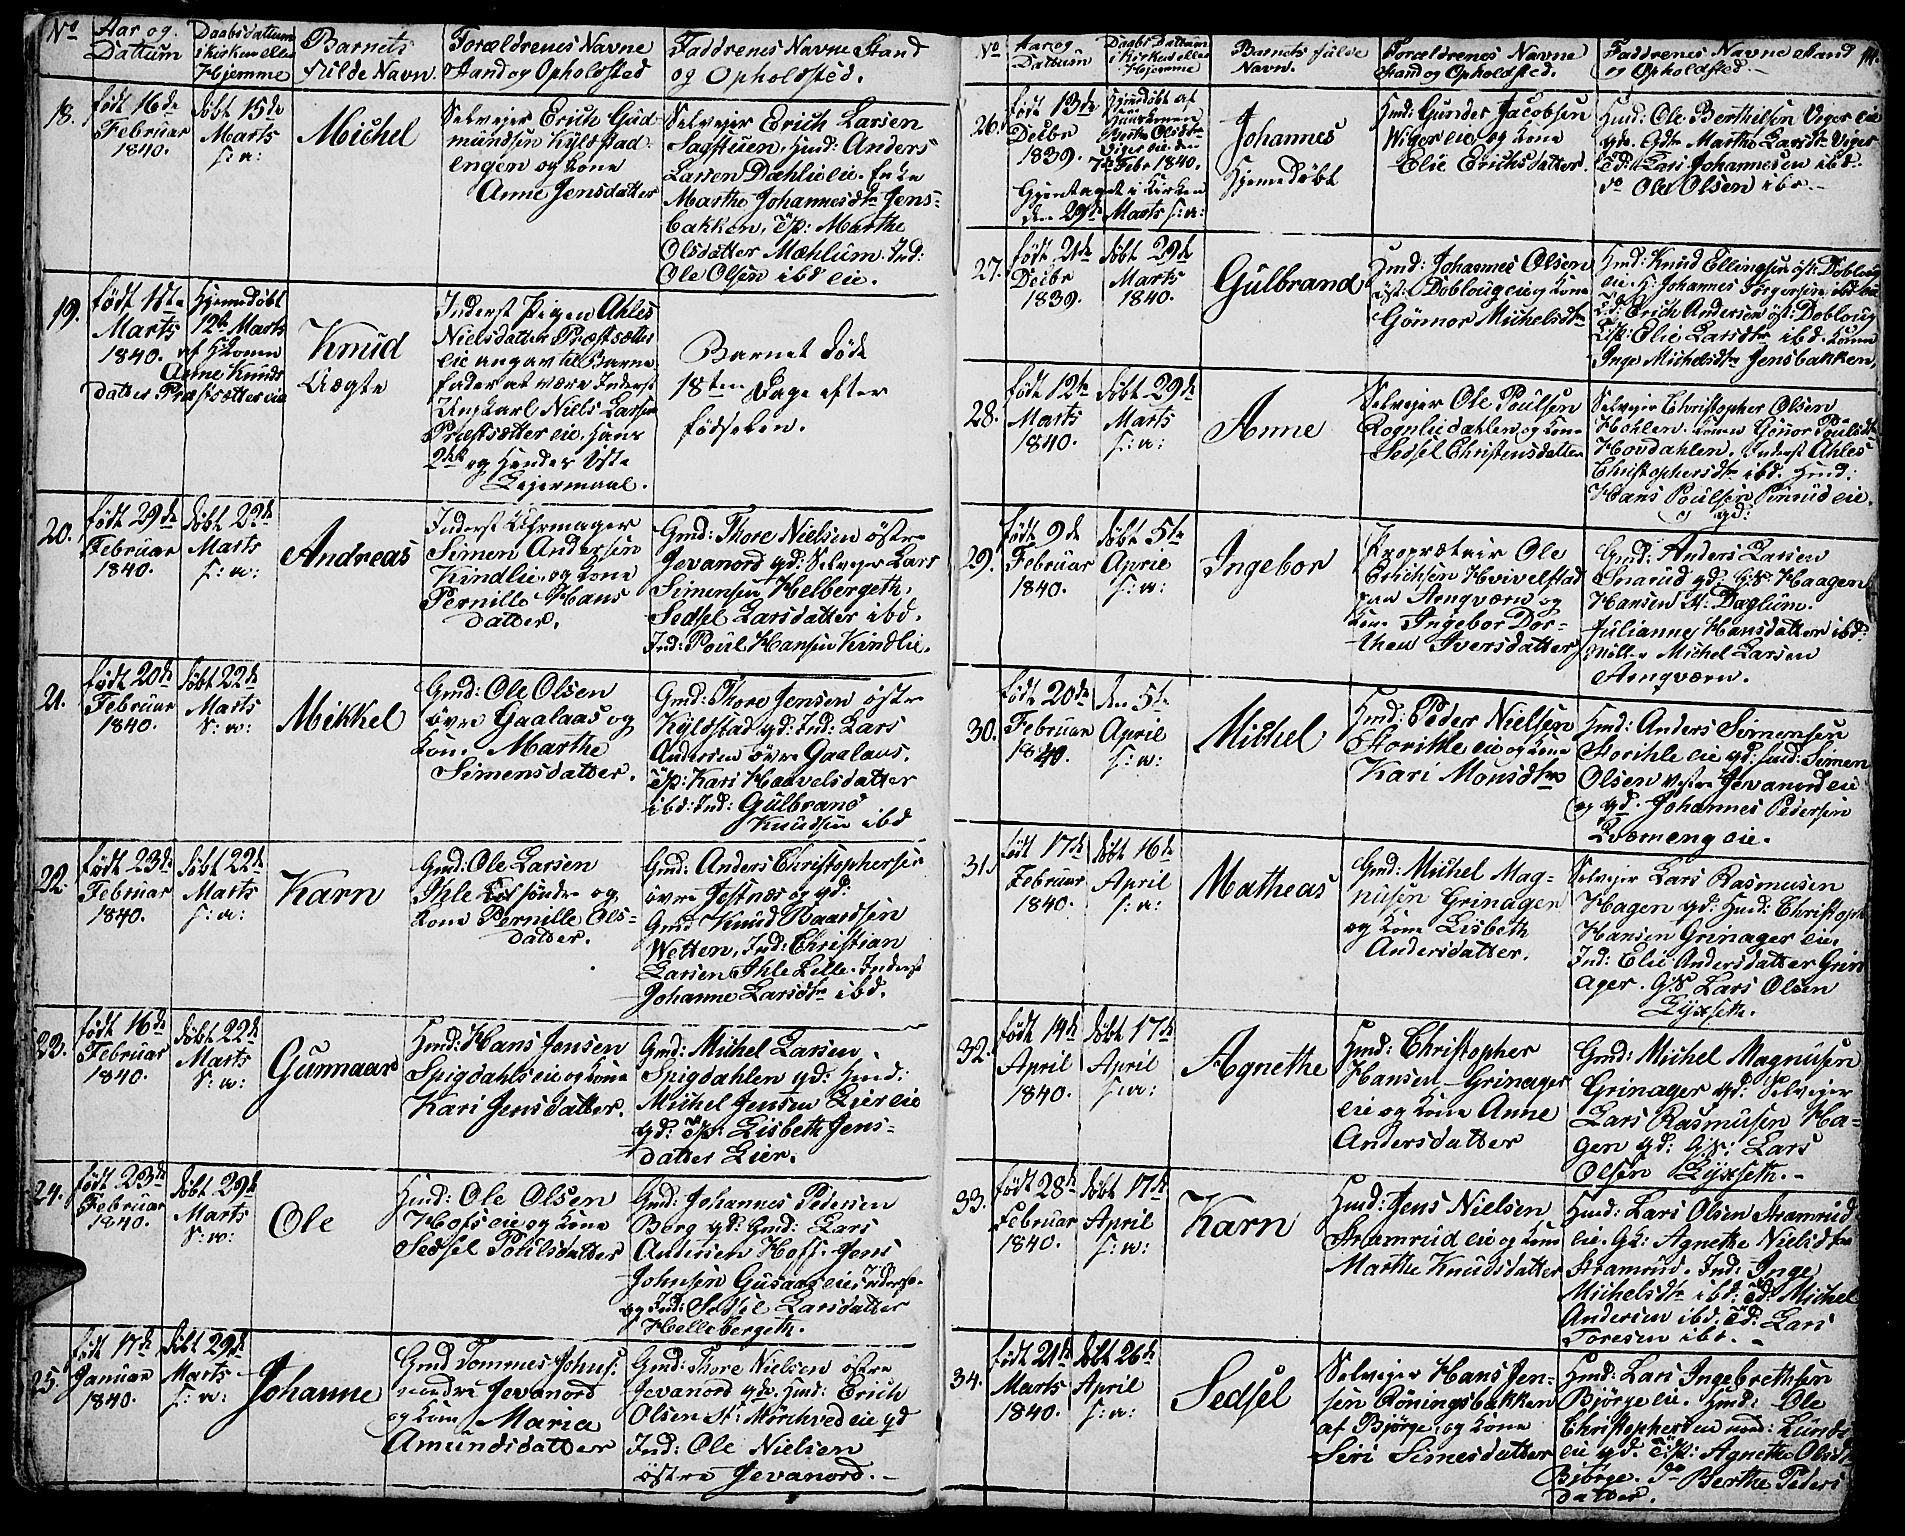 No
Aar og
Dattum
Daabs dattum
i Kirken eller
Hjemme
Barnets
fulde Navn
Forældrenes Navne
Stand og Opholdsted
Faddrenes Navne Stand
og Opholdsted.
18.
født 16de
Februar
1840.
døbt 15de
Marts
s: a:
Michel
Selvejer Erich Gud
mundsen Kylstad
engen og kone
Anne Jensdatter
Selvejer Erich Larsen
Sagstuen. Hmd: Anders
Larsen Dæhlie eie. Enke
Marthe Johannesdtr Jens-
bakken. T/p: Marthe
Olsdatter Mæhlum. Ind:
Ole Olsen ibd eie.
19.
født 1ste
Marts
1840.
Hjemmedøbt
12te Marts
af Konen
Anne Knuds
datter Præstsætter eie
Knud
Uægte
Inderst Pigen Ahles
Nielsdatter Præstsætter
eie angav til Barne
fader at være Inderst
Ungkarl Niels Larsen
Præstsætter eie. Hans
2det og Hendes 1ste
Lejermaal.
Barnet døde
18ten Dage efter
fødselen.
20.
født 29de
Februar
1840.
døbt 22de
Marts
s: a:
Andreas
Inderst Uhrmager
Simen Andersen
Kindlie og kone
Pernille Hans
datter.
Gmd: Thore Nielsen østre
Jevanord gd: Selvejer Lars
Simensen Helbergeth.
Sedsel Larsdatter ibd.
Ind: Poul Hansen Kindlie.
21.
født 20de
Februar
1840.
døbt 22de
Marts
s: a:
Mikkel
Gmd: Ole Olsen
øvre Gaalaas og
kone Marthe
Simensdatter.
Gmd: Thore Jensen østre
Kylstad gd: Ind: Lars
Andersen øvre Gaalaas.
T/p: Kari Haavelsdatter
ibd: Ind: Gulbrand
Knudsen ibd
22.
født 23de
Februar
1840.
døbt 22de
Marts
s: a:
Karn
Gmd: Ole Larsen
Ihle søndre og
kone Pernille Ols-
datter.
Gmd: Anders Christophersen
øvre Jestnes gd:
Gmd Knud Baardsen
Wetten. Ind: Christian
Larsen Ihle Lille. Inderst
Johanne Larsdtr ibd.
23.
født 16de
Februar
1840.
døbt 22de
Marts
s: a:
Gunnaar
Hmd: Hans Jensen
Spigdahls eie og kone
Kari Jensdatter.
Gmd: Michel Larsen
Spigdahlen gd: Hmd:
Michel Jensen Lier eie
gd: T/p: Lisbeth Jens-
datter Lier.
24.
født 23de
Februar
1840.
døbt 29de
Marts
s: a:
Ole
Hmd: Ole Olsen
Hofs eie og kone
Sedsel Poulsdatter
Gmd: Johannes Pedersen
Berg gd: Gmd: Lars
Andersen Hoff. Jens
Johnsen Gusaas eie Inderst
og Ind: Sedsel Larsdatter
Hellebergeth.
25.
født 17de
Januar
1840.
døbt 29de
Marts
s: a:
Johanne
Gmd Tommes Johns:
nendre Jevanord
og kone Maria
Amundsdatter
Gmd: Thore Nielsen østre
Jevanord gd. Hmd: Erich
Olsen St: Mørchved eie gd
Ind: Ole Nielsen
østre Jevanord.
No
Aar og
Dattum
Daabs Dattum
i Kirken eller
Hjemme
Barnets fulde
Navn.
Forældrenes Navne
Stand og Opholdsted.
Faddrenes Navne Stand
og Opholdsted.
26.
født 13de
Decbr
1839.
Hjemdøbt af
Berthe Olsdtr
Viger eie den
7de Febr 1840.
Gjentaget i Kirken
den 29de Marts s: a:
Johannes
Hjemedøbt
Hmd: Gunder Jacobsen
Wiger eie og kone
Elie Erichsdatter.
Hmd: Ole Berthelsen Viger eie
gd. Marthe Larsdtr Viger
Lars Johannesen ibd.
do Ole Olsen ibd.
27.
født 21de
Decbr
1839.
døbt 29de
Marts
1840.
Gulbrand
Hmd: Johannes Olsen
øst: Doblougeie og kone
Gønnor Michelsdtr
Hmd: Knud Ellingsen øst: Dobloug
eie. H: Johannes Torgersen ibd eie
Erich Andersen øst: Dobloug
Elie Larsdtr ibd. konen
Inge Michelsdtr Jensbakken.
28.
født 12te
Marts
1840.
døbt 29de
Marts
s: a:
Anne
Selvejer Ole Poulsen
Rognliedahlen og kone
Sedsel Christensdatter
Selvejer Christopher Olsen
Hohlen. konen Gønor Poulsdtr
Hovdahlen. Inderst Ahles
Christophersdtr ibd. Hmd:
Hans Poulsen Penrud eie.
og gd:
29.
født 9de
Februar
1840.
døbt 5te
April
s: a:
Ingebor
Proprætair Ole
Erichsen Hvivelstad
paa Aengværn og
kone Ingebor Dor-
thea Iversdatter
Gmd: Anders Larsen
Snarud gd: G/K Haagen
Hansen N: Daglum.
Julianne Hansdatter ibd:
Møller Michel Larsen
Aengværn.
30.
født 20de
Februar
1840.
den 5te
April
s: a:
Michel
Hmd: Peder Nielsen
Storihle eie og kone
Kari Monsdtr
Hmd: Anders Simensen
Storihle eie gd: Hmd: Simen
Olsen vestre Jevanord eie
og gd. Johannes Pedersen
Qværneng eie.
31.
født 17de
Februar
1840.
døbt 16de
April
s: a:
Matheas
Gmd: Michel Mag-
nusen Grinager
og kone Lisbeth
Andersdatter.
Selvejer Lars Rasmusen
Hagen gd: Hmd: Christoph
Hansen Grinager eie.
Ind: Elie Andersdatter Grin
ager. G/K Lars Olsen
Lyxseth.
32.
født 14de
April
1840.
døbt 17de
April
s: a:
Agnethe
Hmd: Christopher
Hansen Grinager
eie og kone Anne
Andersdatter
Gmd: Michel Magnusen
Grinager gd: Selvejer
Lars Rasmusen Ha-
gen gd: G/K: Lars
Olsen Lyxseth.
33.
født 28de
Februar
1840.
døbt 17de
April
s: a:
Karn
Hmd: Jens Nielsen
Stramrud eie og kone
Marthe Knudsdatter
Hmd: Lars Olsen Stramrud
eie. Gk: Agnethe Nielsdtr
Stramrud. Ind: Inge
Michelsdtr ibd: Td: Michel
Andersen ibd. Td: Lars
Toresen ibd.
34.
født 21de
Marts
1840.
døbt 26de
April
s: a:
Sedsel
Selvejer Hans Jen-
sen Røningsbakken
af Bjørge og kone
Siri Simesdatter
Hmd: Lars Ingebrethsen
Bjørge eie. Hmd: Ole
Christophersen ned: Lunde
eie gd. T/p: Agnethe Olsdtr
Bjørge. do Berthe Peders
datter.